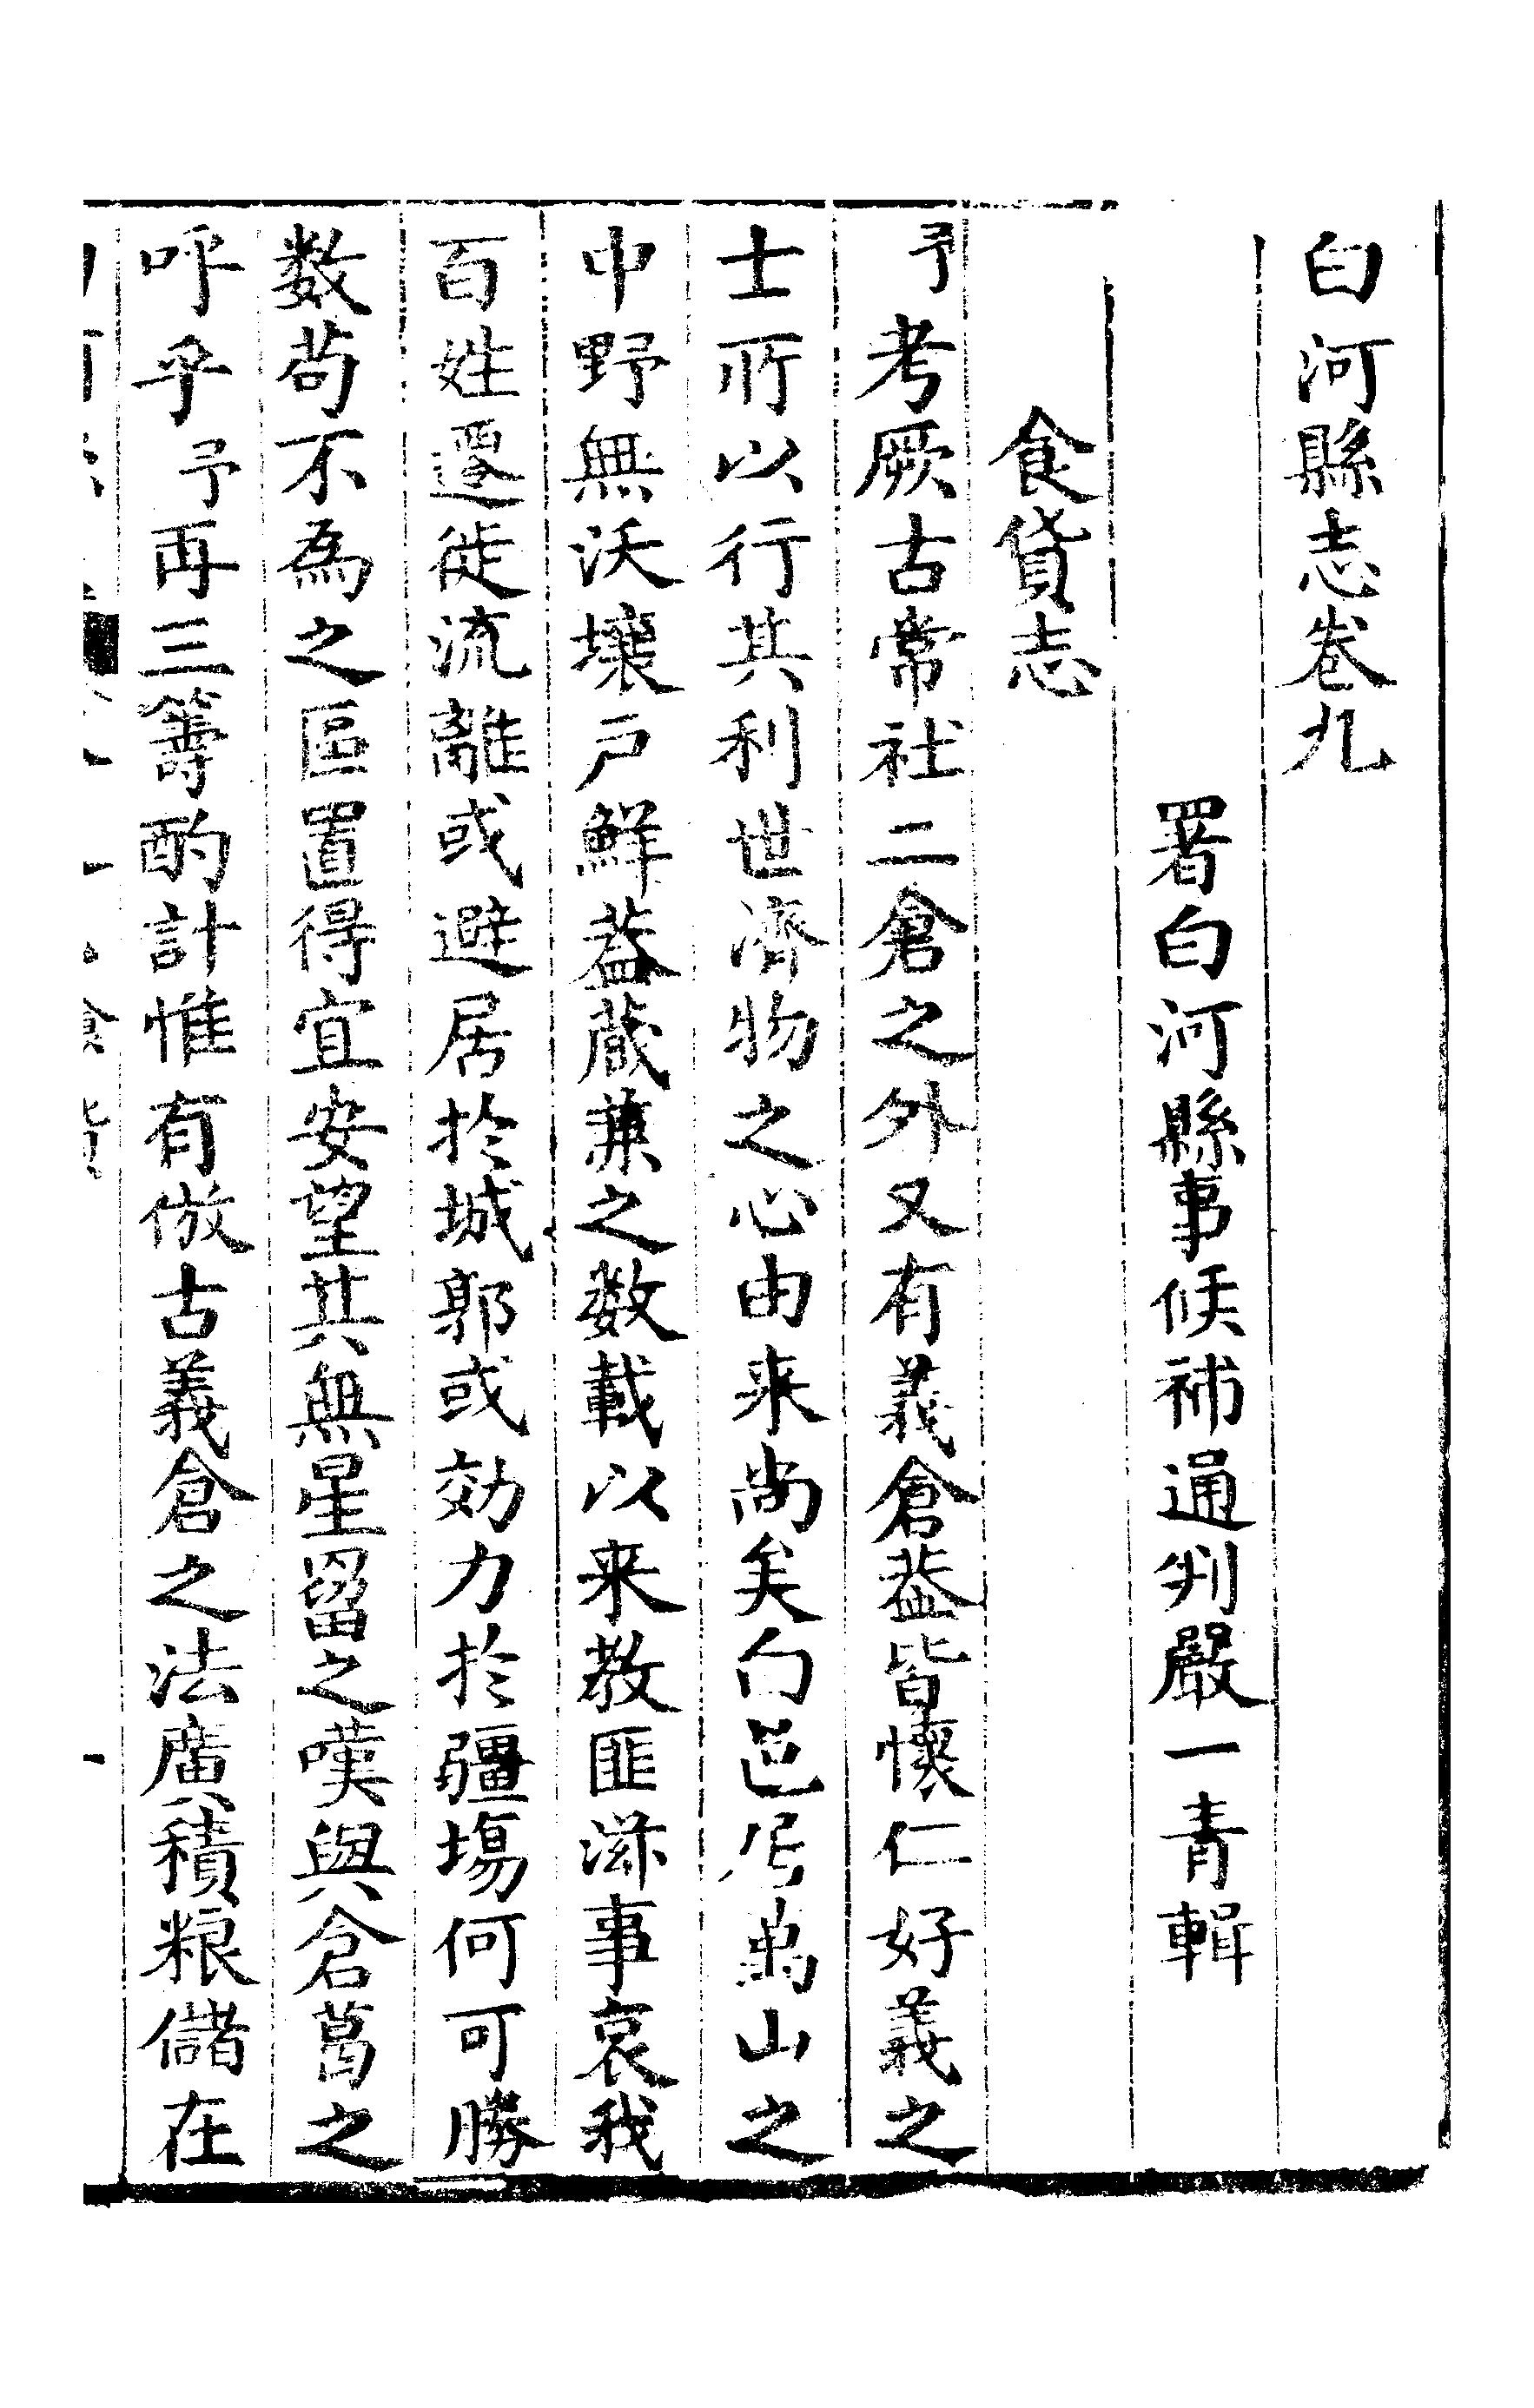 白河縣志卷九
署白河縣事候補通判嚴一青輯
食貨志
予考厥古常社二倉之外又有義倉葢皆懷仁好義之
士所以行其利世濟物之心由来尚矣白邑居萬山之
中野無沃壤户鮮葢藏兼之数載以来教匪滋事哀我
百姓遷徙流離或避居於城郭或効力於疆塲何可勝
数苟不為之區置得宜安望其無星罶之嘆與倉葛之
呼乎予再三籌酌計惟有倣古義倉之法廣積粮儲在